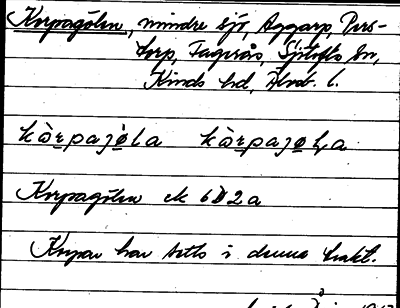 Korpagölen, mindre sjö, Aggarp, Pers-
torp, Fagerås, Sjötofta sn,
Kinds hd, Älvsb. l.
kòrpajo̊la kòrpajo̊ɫa
Korpagölen ek 6D2a
Korpar har setts i denna trakt.